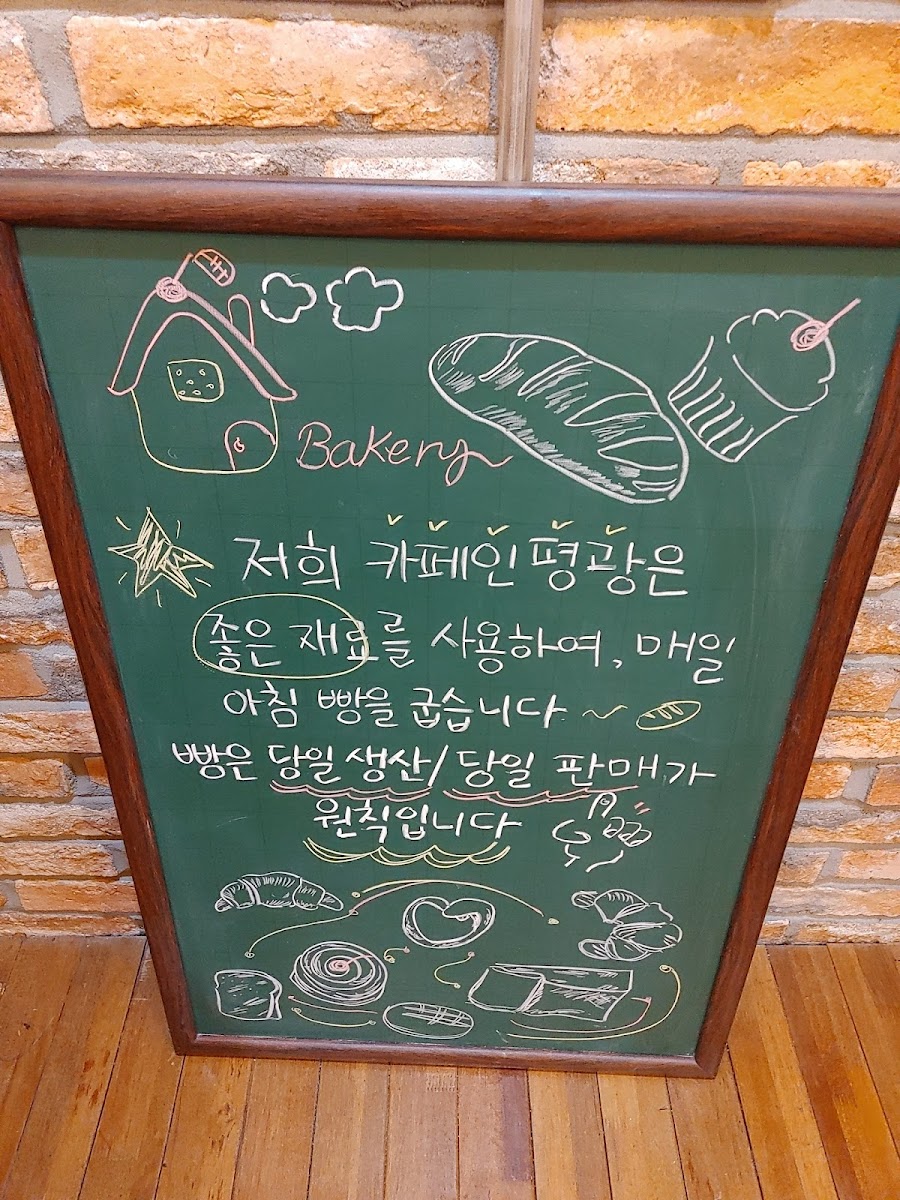 Bakery
저희 카페인평광은
좋은 재료를 사용하여, 매일
아침 빵을 굽습니다 ~
빵은 당일 생산/당일 판매가
원칙입니다